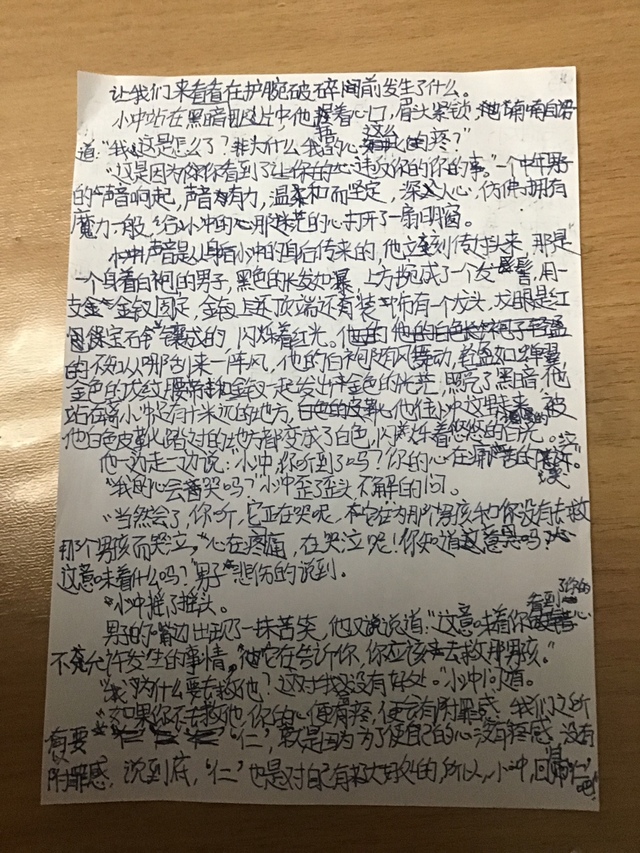 让我们来看看在护腕破碎间前发生了什么。
小冲站在黑暗里中,他捂着心口,眉头紧锁,他喃喃自语
道:"我这是怎么了?为什么我的心这么的疼?"
"这是因为你看到了让你的心违反你的你的事。"一个中年男子
的声音响起,声音有力,温柔和而坚定,深入人心,仿佛拥有
魔力一般,给小冲的心那迷茫的心打开了一扇明窗。
声音是从小冲的身后传来的,他立刻传过头来,那是
一个身着白袍的男子,黑色的长发如瀑,上方挽成了一个发髻,用一
支金钗固定,金钗顶端还装饰有一个龙头,龙眼是红
宝石镶成的,闪烁着红光。他的白色长袍
的不知从哪刮来一阵风,他的白袍随风舞动,轻盈如蝉翼
金色的龙纹腰带和金钗一起发出金色的光芒,照亮了黑暗,他
站在离小冲足有十米远的地方,他往小冲这里走来,被
他白色皮靴踏过的地方都变成了白色,闪烁着悠悠的白光。
他一边走一边说:"小冲,你听到了吗?你的心在痛苦的哭泣。"
"我的心会哭吗?"小冲歪了歪头不解的问。
"当然会了,你听,它正在哭呢,它在为那个男孩和你没有去救
那个男孩而哭泣,心在疼痛,在哭泣呢!你知道这意
这意味着什么吗?"男子悲伤的说到。
小冲摇了摇头。
男子的嘴边出现了一抹苦笑,他又说道:"这意味着你看到了你的心
不允许发生的事情,它在告诉你,你应该去救那男孩。"
"我为什么要去救他?这对我没有好处。"小冲问道。
"如果你不去救他,你的心便有疼,便会有附罪感,我们之所
以有要"仁",就是因为为了使自己的心没有疼感,没有
附罪感,说到底,"仁"也是对自己有极大好处的,所以,小冲,回归"仁"吧!"